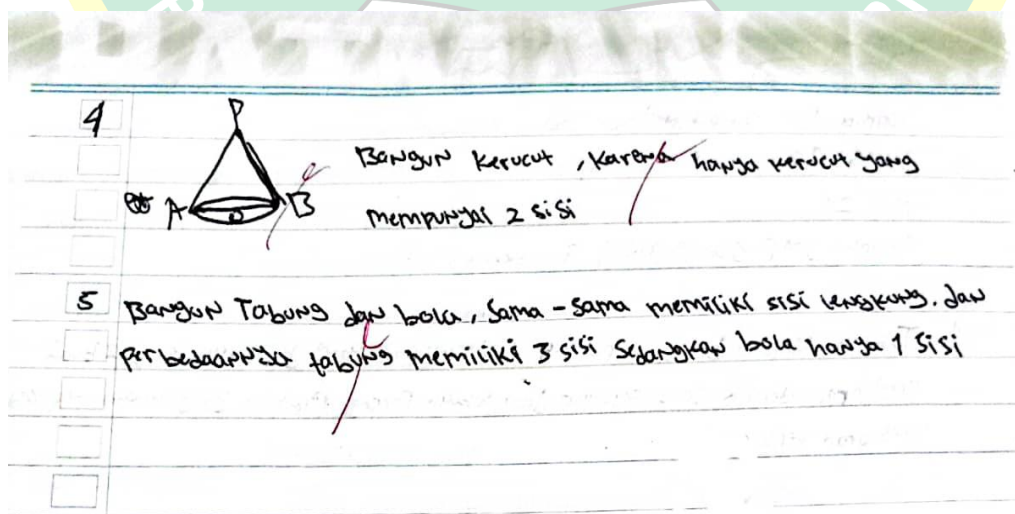 4
P
A
O
B
Bangun kerucut, karena hanya kerucut yang
mempunyai 2 sisi
5 Bangun Tabung dan bola, Sama-sama memiliki sisi lengkung. dan
perbedaannya tabung memiliki 3 sisi Sedangkan bola hanya 1 sisi